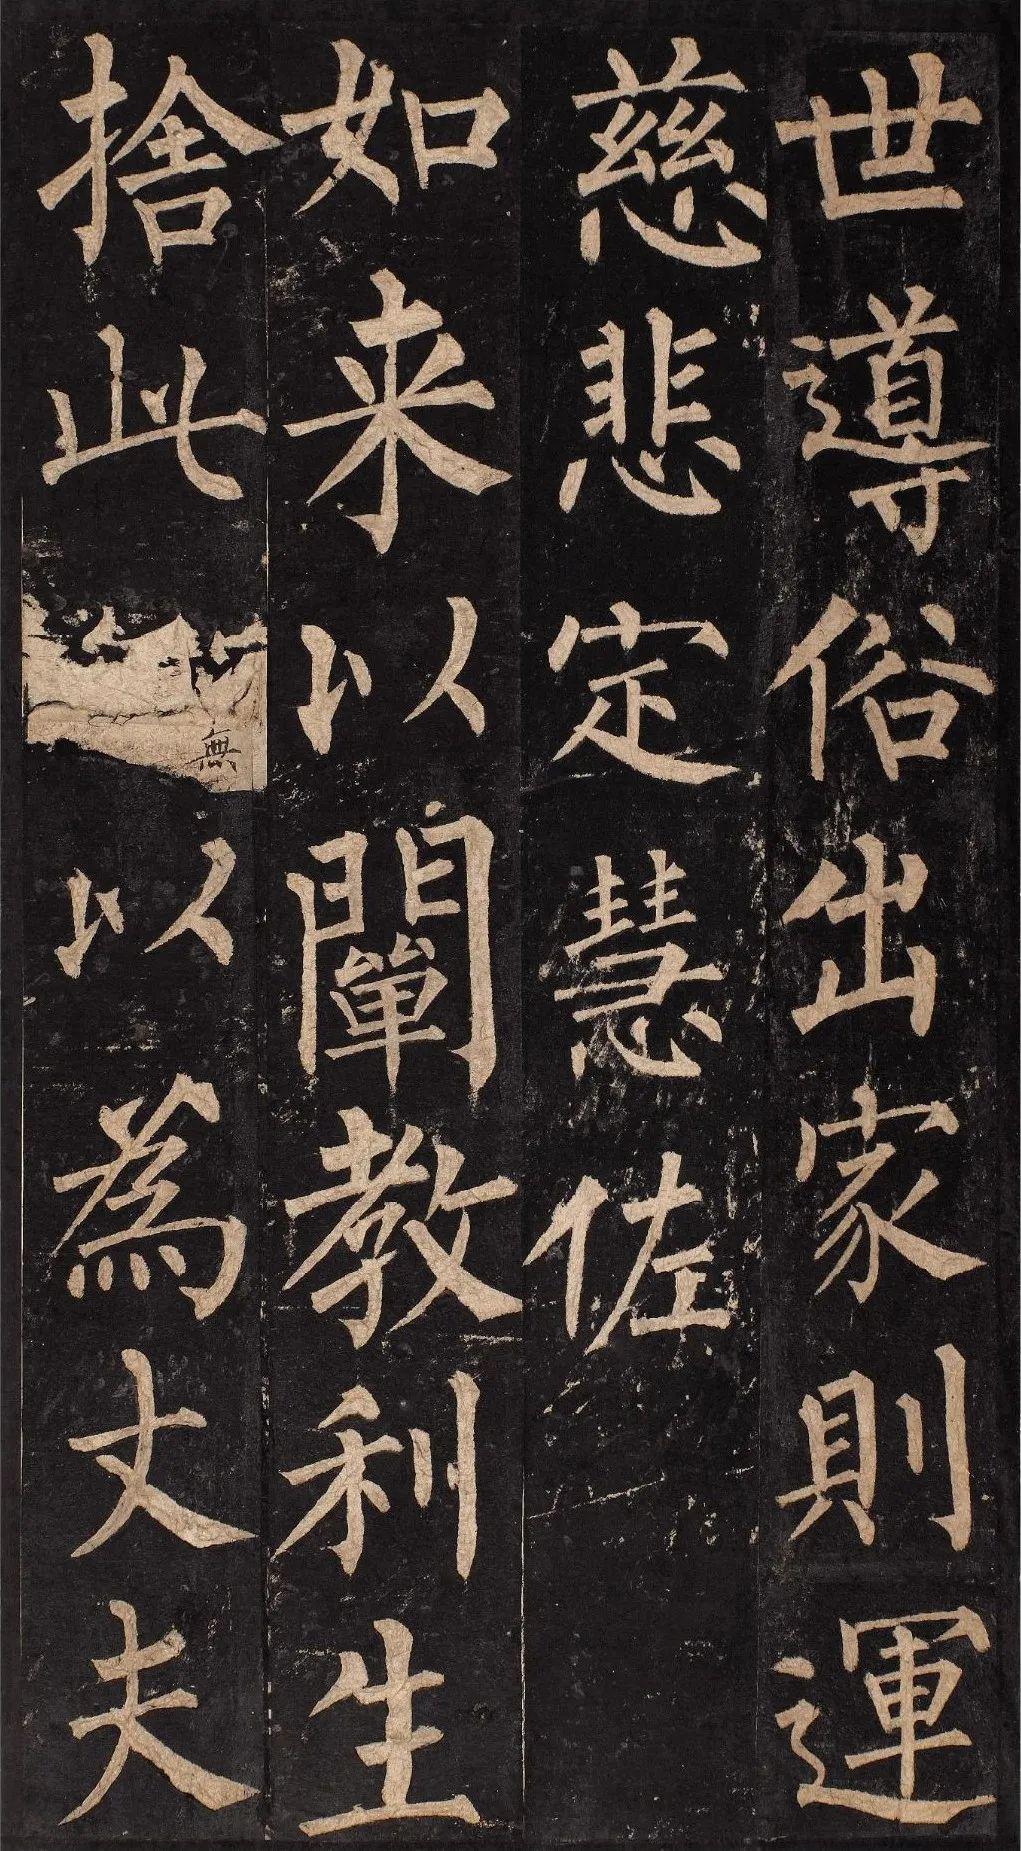 世導俗出家則運
慈悲定慧佐
如来以闡教利生
捨此無以為丈夫